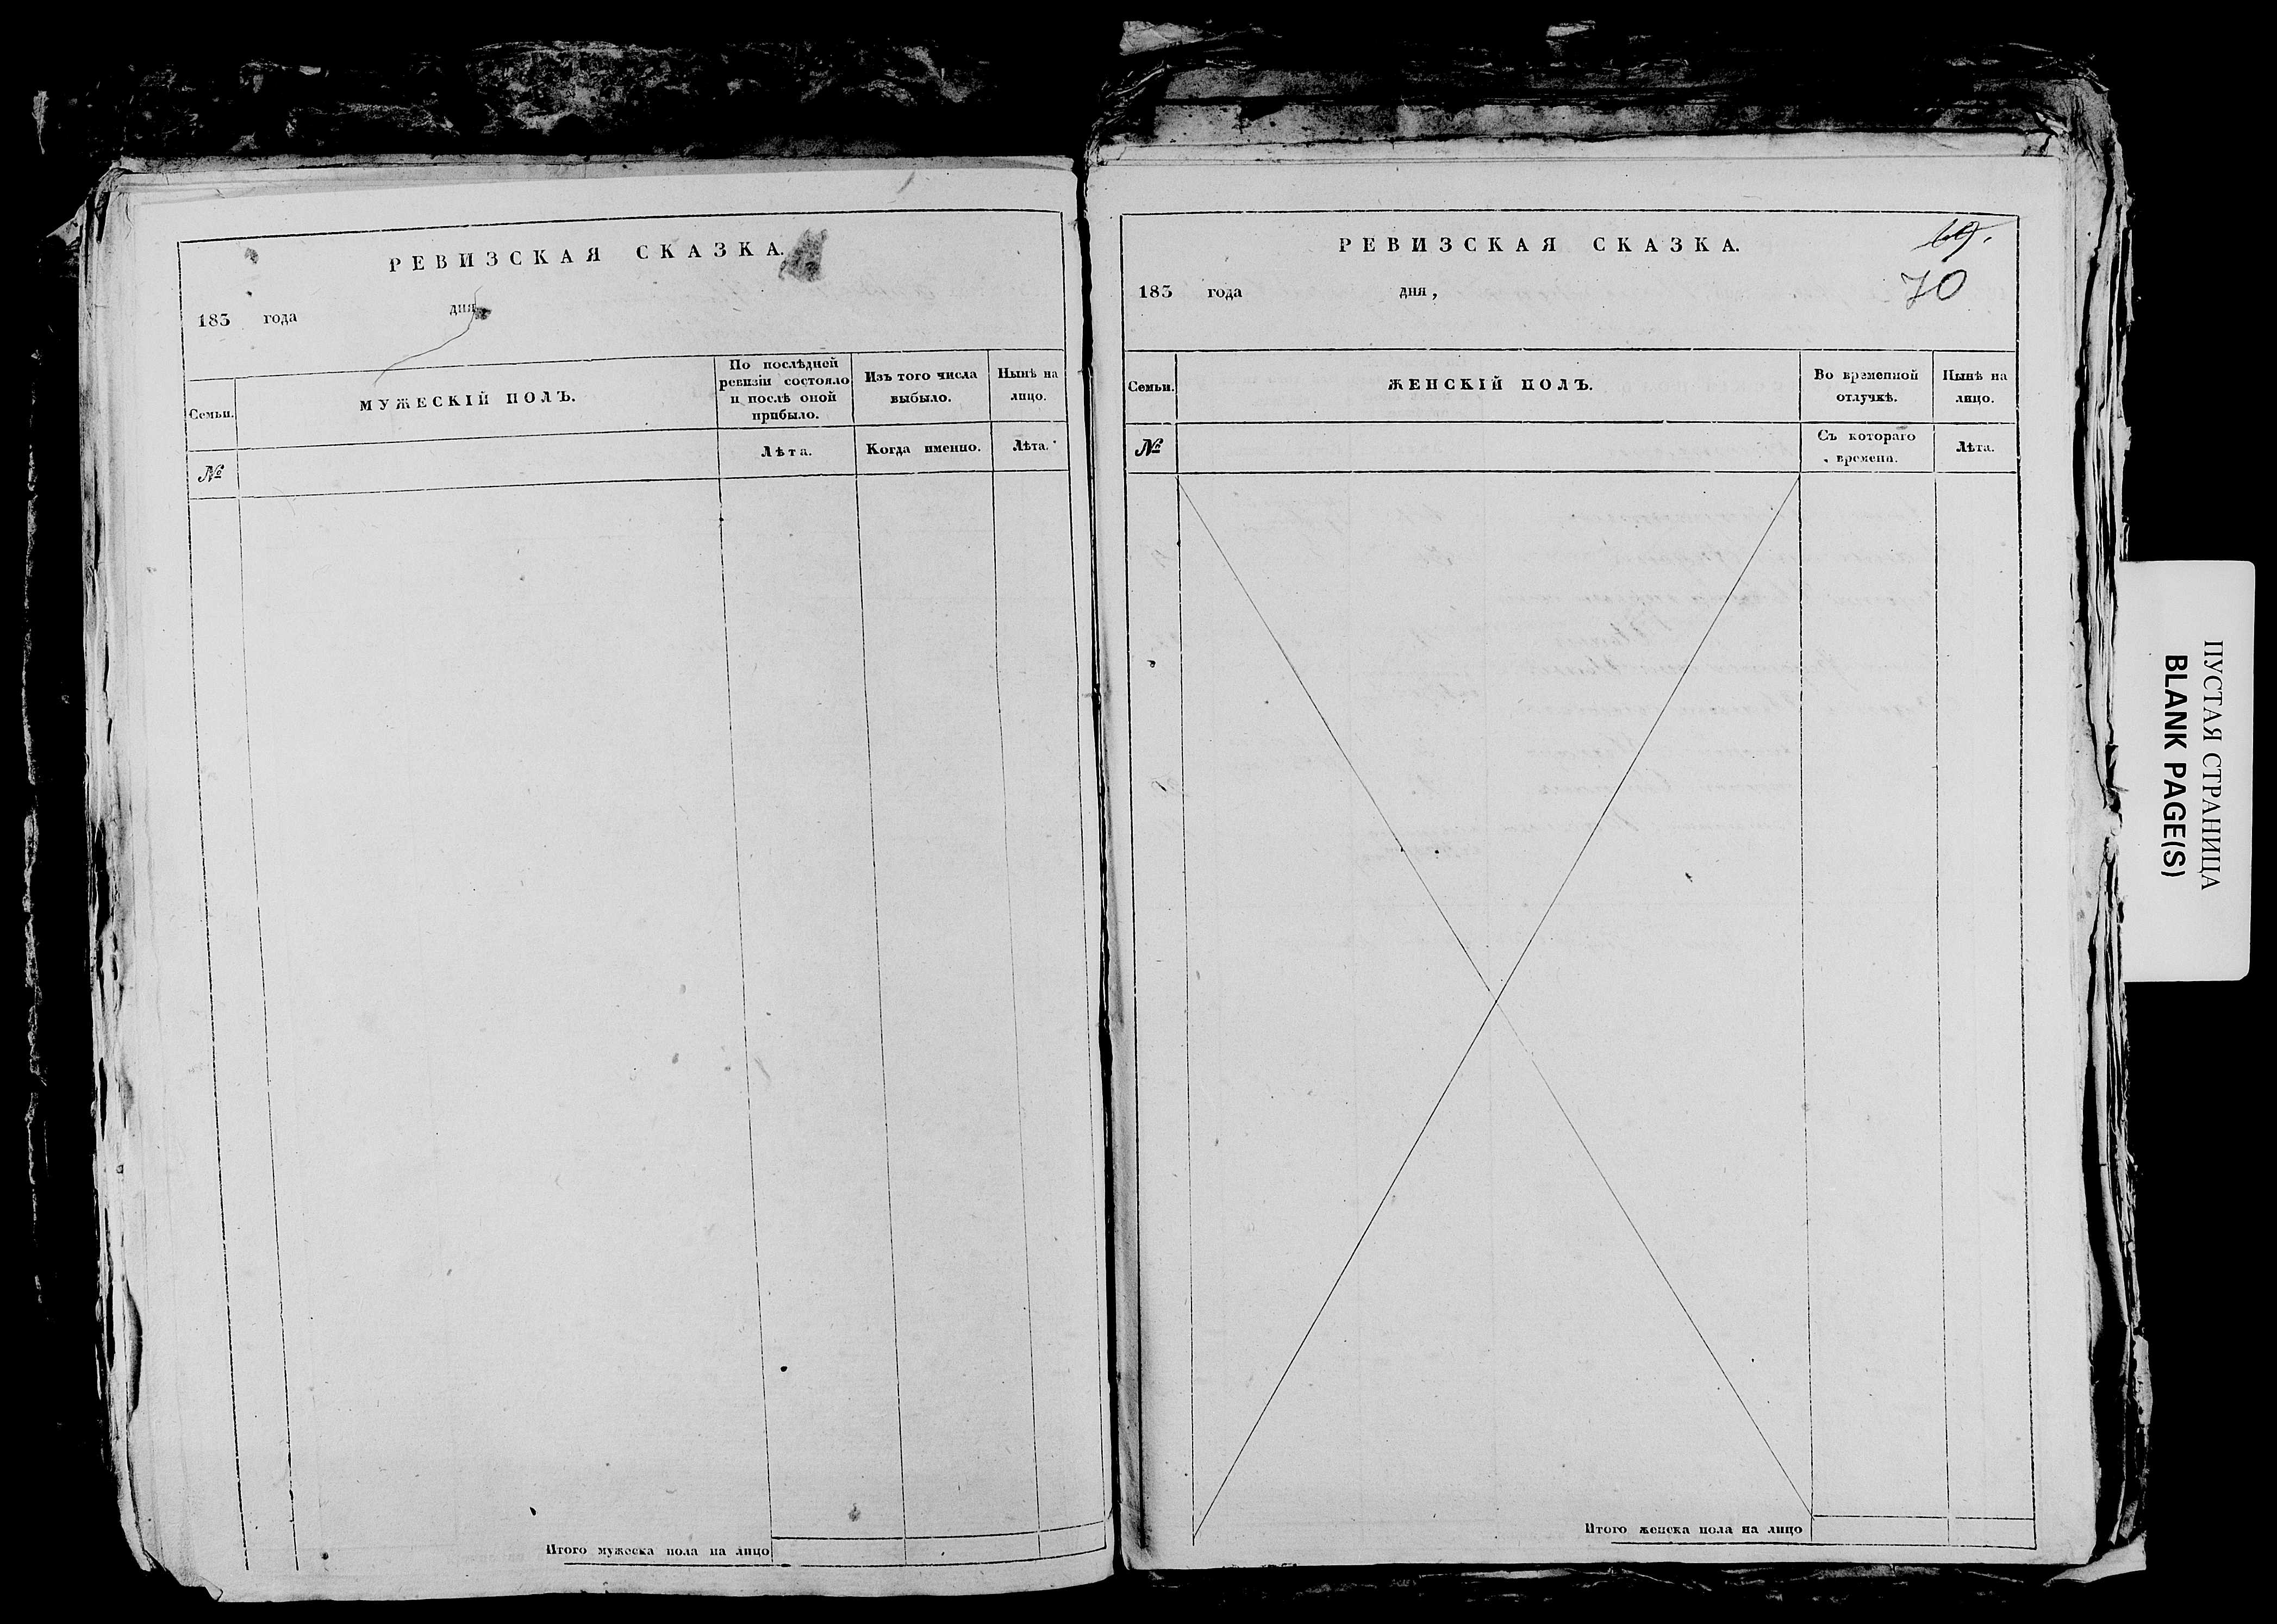 РЕВИЗСКАЯ СКАЗКА.
183 года дня
Семьи.
МУЖЕСКІЙ ПОЛЪ.
По послѣдней
ревизіи состояло
и послѣ оной
прибыло.
Изъ того числа
выбыло.
Нынѣ на
лицо.
№
Лѣта.
Когда именно.
Лѣта.
Итого мужеска пола на лицо
РЕВИЗСКАЯ СКАЗКА.
69.
70
183 года дня,
Семьи.
ЖЕНСКІЙ ПОЛЪ.
Во временной
отлучкѣ.
Нынѣ на
лицо.
№
Съ котораго
времени.
Лѣта.
Итого женска пола на лицо
ПУСТАЯ СТРАНИЦА
BLANK PAGE(S)